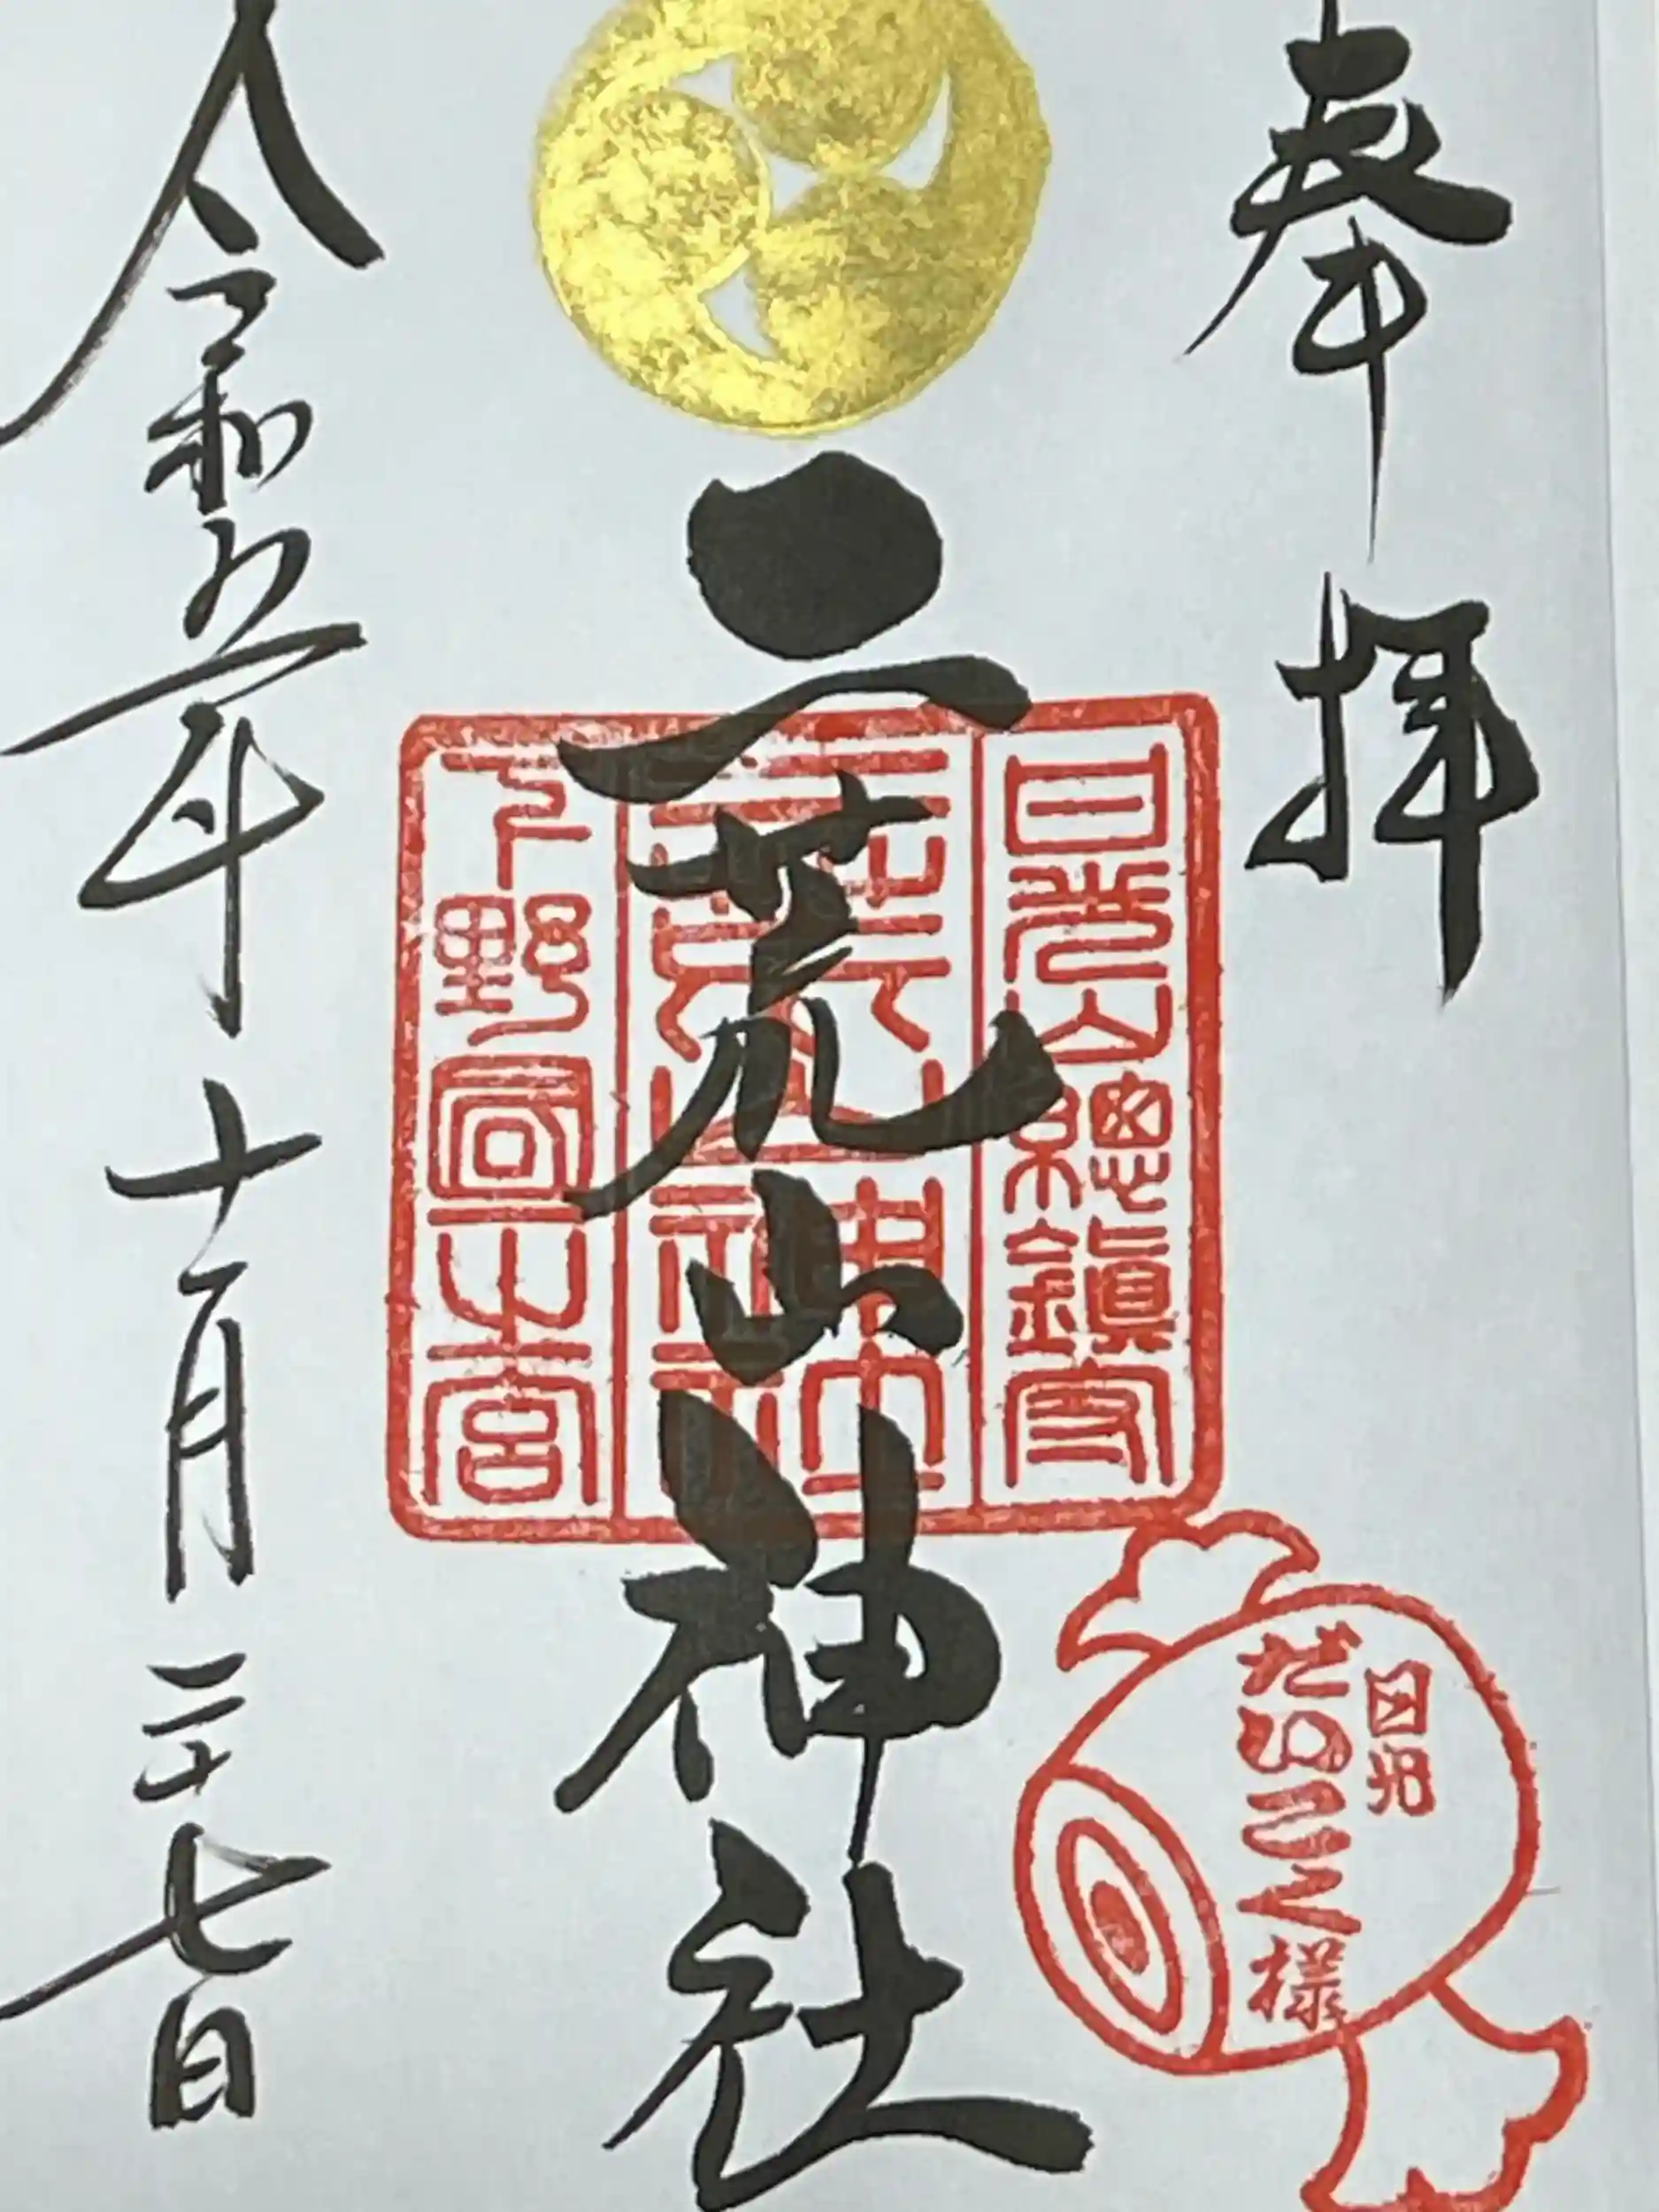 奉拝
日光山總鎮守
二荒山神社
下野國一之宮
二荒山神社
日光
だいこく様
令和五年十月二十七日